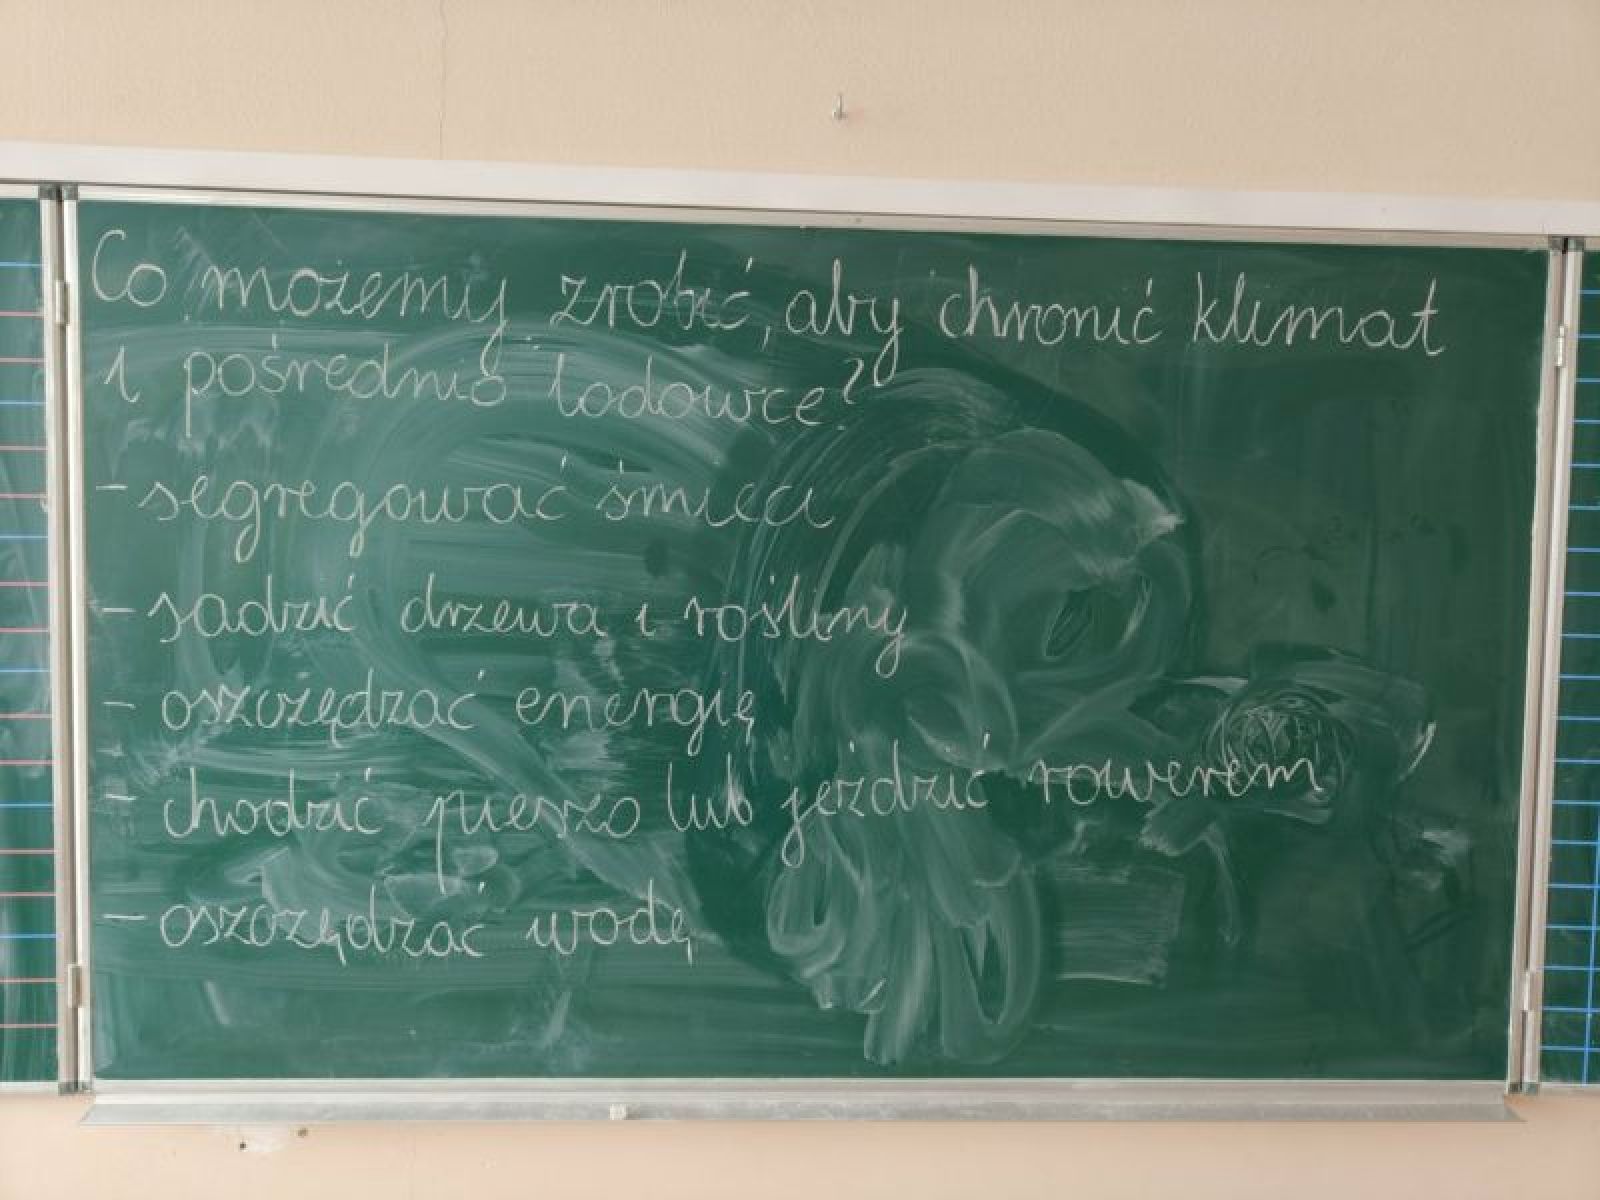 Co możemy zrobić, aby chronić klimat
i pośrednio lodowce?
- segregować śmieci
- sadzić drzewa i rośliny
- oszczędzać energię
- chodzić pieszo lub jeździć rowerem
- oszczędzać wodę